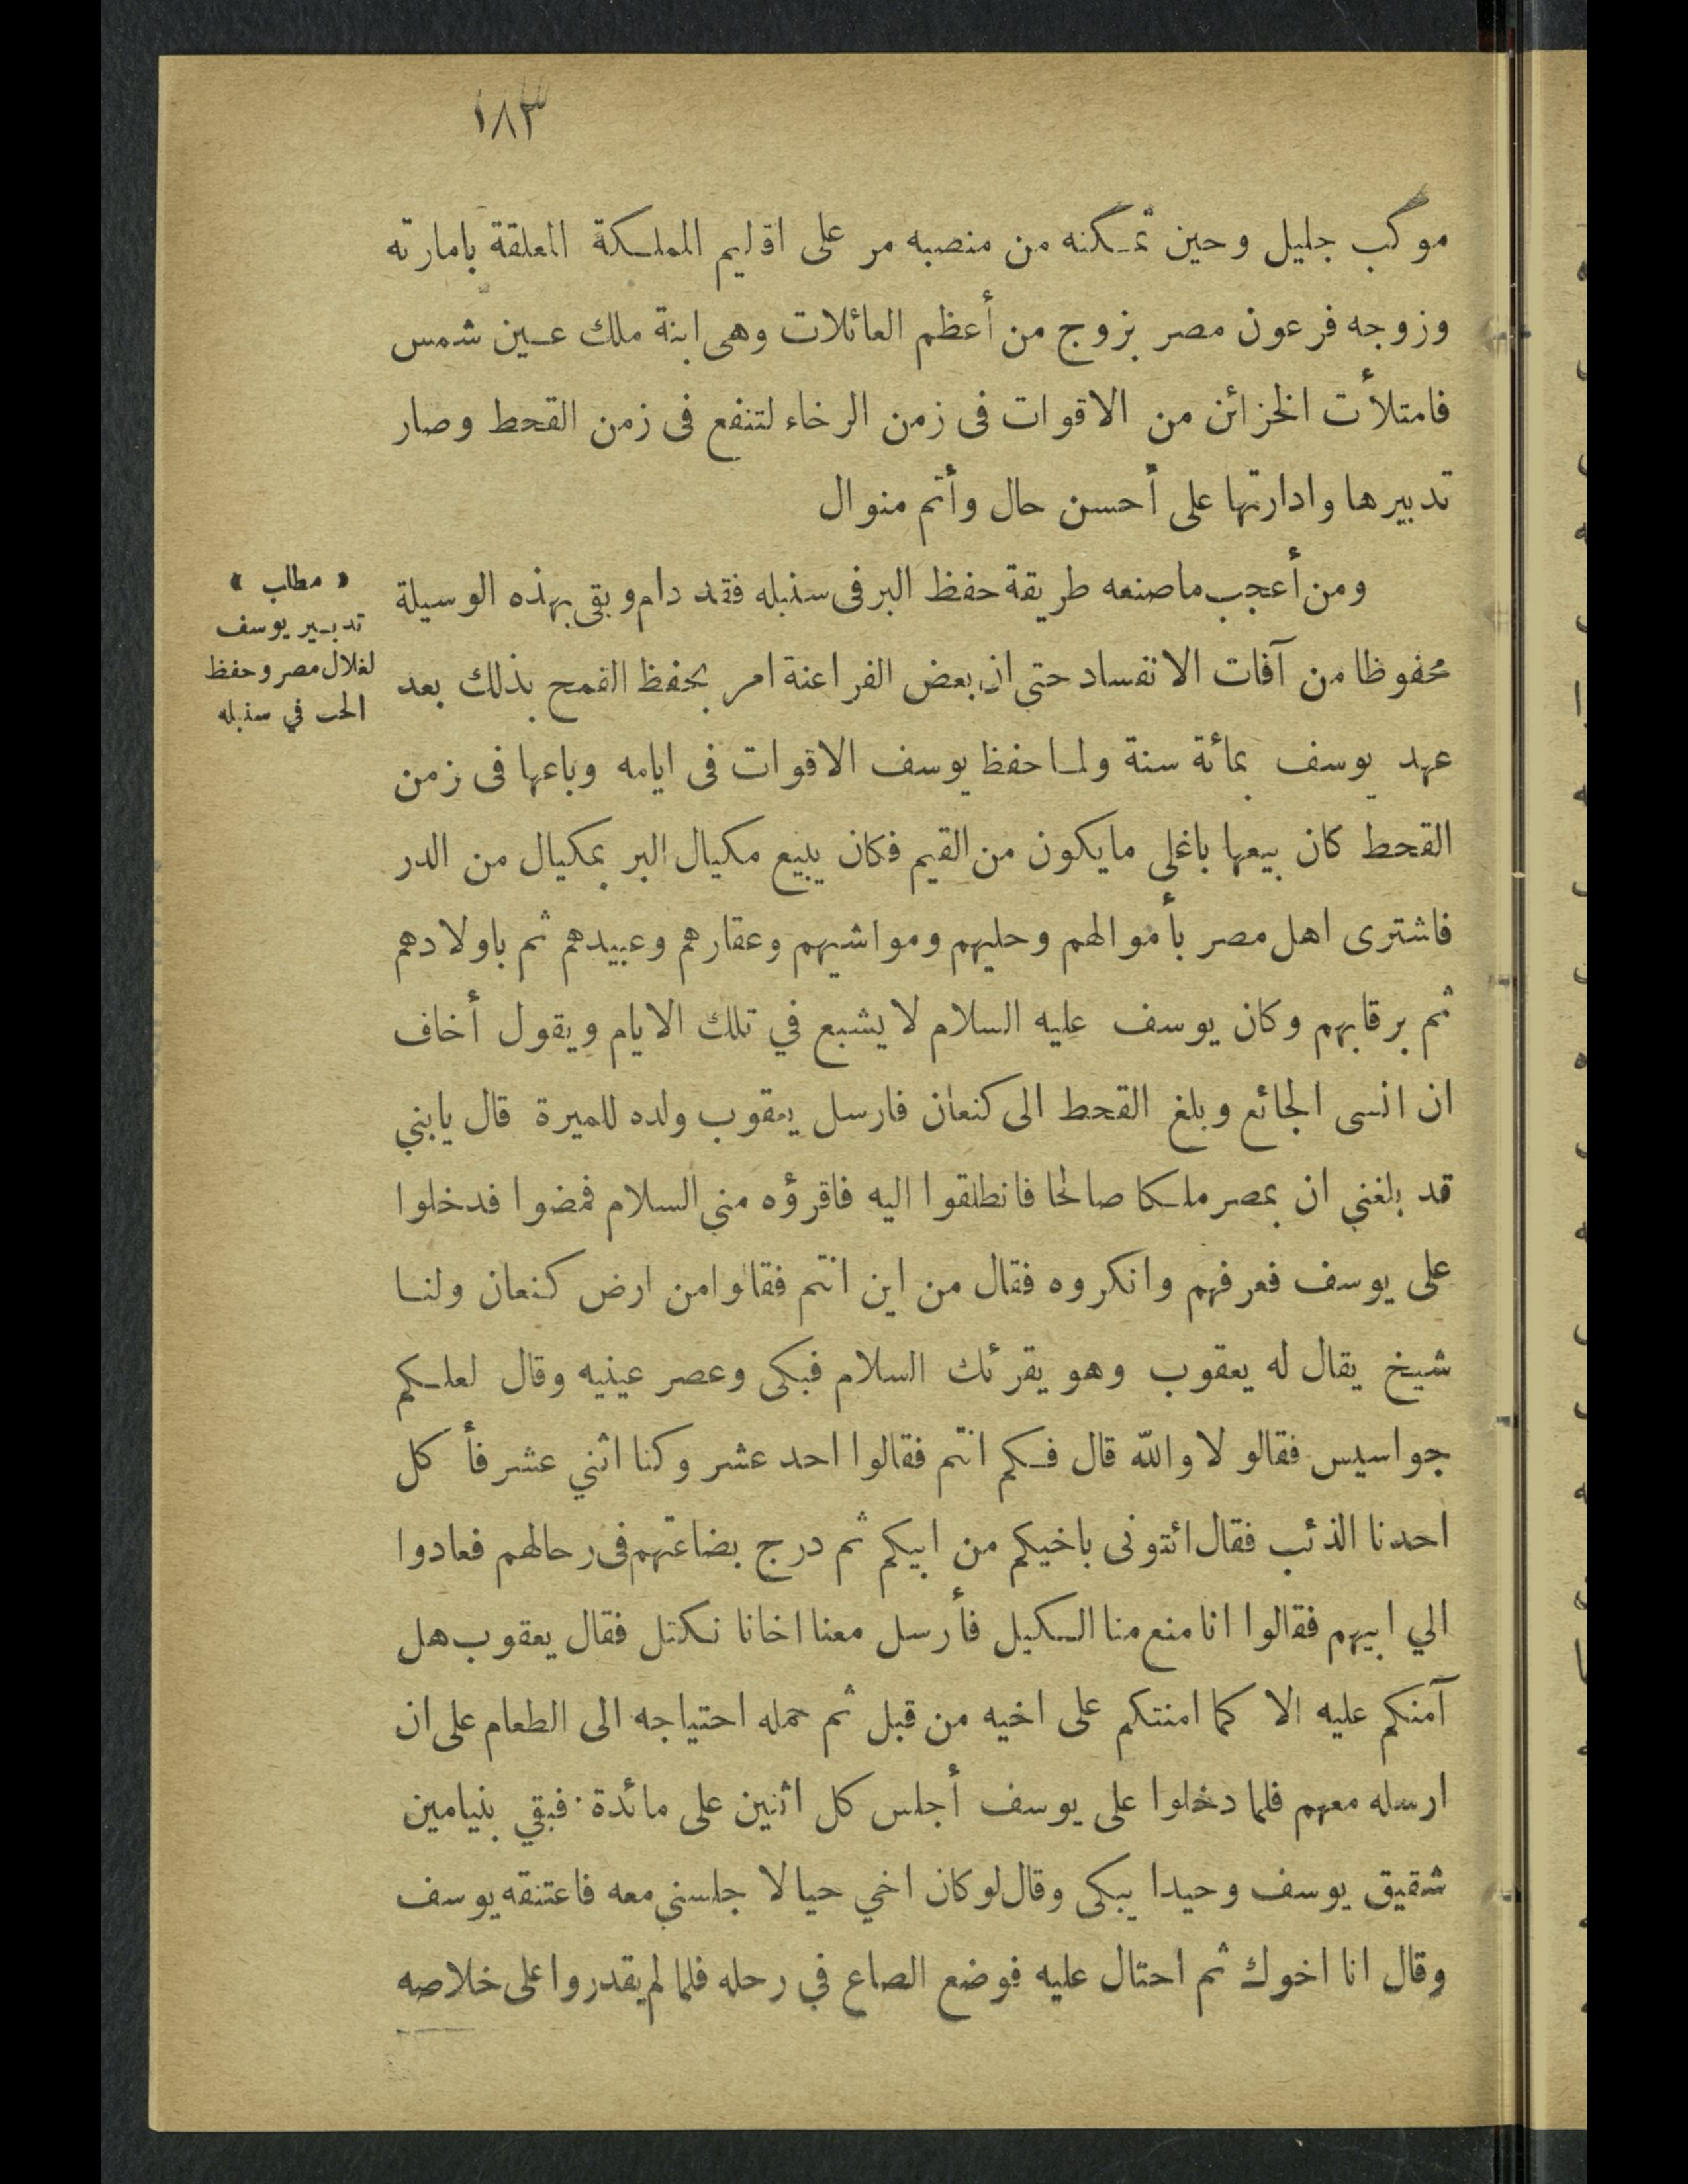 ١٨٣
موكب جليل وحين تمكنه من منصبه مر على اقاليم المملكة المعلقة بامارته
وزوجه فرعون مصر بزوج من أعظم العائلات وهى ابنة ملك عين شمس
فامتلأت الخزائن من الاقوات فى زمن الرخاء لتنفع فى زمن القحط وصار
تدبيرها وادارتها على أحسن حال وأتم منوال
ومن أعجب ماصنعه طريقة حفظ البر فى سنبله فقد دام وبقى بهذه الوسيلة
محفوظا من آفات الانفساد حتى ان بعض الفراعنة امر بحفظ القمح بذلك بعد
عهد يوسف بمائة سنة ولما حفظ يوسف الاقوات فى ايامه وباعها فى زمن
القحط كان بيعها باغلى مايكون من القيم فكان يبيع مكيال البر بمكيال من الدر
فاشترى اهل مصر بأموالهم وحليهم ومواشيهم وعقارهم وعبيدهم ثم باولادهم
ثم برقابهم وكان يوسف عليه السلام لا يشبع في تلك الايام ويقول أخاف
ان انسى الجائع وبلغ القحط الى كنعان فارسل يعقوب ولده للميرة قال يابني
قد بلغني ان بمصر ملكا صالحا فانطلقوا اليه فاقرؤه مني السلام فمضوا فدخلوا
على يوسف فعرفهم وانكروه فقال من اين انتم فقالوا من ارض كنعان ولنا
شيخ يقال له يعقوب وهو يقرئك السلام فبكى وعصر عينيه وقال لعلكم
جواسيس فقالو لا والله قال فكم انتم فقالوا احد عشر وكنا اثني عشر فأ كل
احدنا الذئب فقال ائتونى باخيكم من ابيكم ثم درج بضاعتهم فى رحالهم فعادوا
الي ابيهم فقالوا انا منع منا الكيل فأرسل معنا اخانا نكتل فقال يعقوب هل
آمنكم عليه الا كما امنتكم على اخيه من قبل ثم حمله احتياجه الى الطعام على ان
ارسله معهم فلما دخلوا على يوسف أجلس كل اثنين على مائدة فبقي بنيامين
شقيق يوسف وحيدا يبكى وقال لو كان اخي حيا لا جلسني معه فاعتنقه يوسف
وقال انا اخوك ثم احتال عليه فوضع الصاع في رحله فلما لم يقدروا على خلاصه
« مطلب »
تدبير يوسف
لغلال مصر وحفظ
الحب في سنبله